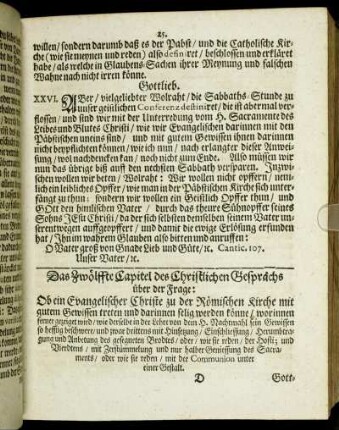 25.
willen/ sondern darumb daß es der Pabst/ und die Catholische Kir-
che (wie sie meynen und reden) also definiret/ beschlossen und erkläret
habe/ als welche in Glaubens-Sachen ihrer Meynung und falschen
Wahne nach nicht irren könne.
Gottlieb.
XXVI. Aber/ vielgeliebter Wolraht/ die Sabbaths-Stunde zu
unser geistlichen Conferenz destiniret/ die ist abermal ver-
flossen/ und sind wir mit der Unterredung vom H. Sacramente des
Leibes und Blutes Christi/ wie wir Evangelischen darinnen mit den
Päbstischen uneins sind/ und mit gutem Gewissen ihnen darinnen
nicht beypflichten können/ wie ich nun/ nach erlangter dieser Anwei-
sung/ wol nachdencken kan/ noch nicht zum Ende. Also müssen wir
nun das übrige biß auff den nechsten Sabbath versparen. Inzwi-
schen wollen wir beten/ Wolraht: Wir wollen nicht opffern/ nem-
lich ein leibliches Opffer/ wie man in der Päbstischen Kirche sich unter-
fängt zu thun: sondern wir wollen ein Geistlich Opffer thun/ und
GOtt den himlischen Vater/ durch das theure Sühnopffer seines
Sohns JEsu Christi/ da der sich selbsten denselben seinem Vater im
serentwegen auffgeopffert/ und damit die ewige Erlösung erfunden
hat/ Ihn im wahrem Glauben also bitten und anruffen:
O Vater groß von Gnade Lieb und Güte/ ꝛc. Cantic. 107.
Unser Vater/ ꝛc.
Das Zwölffte Capitel des Christlichen Gesprächs
über der Frage:
Ob ein Evangelischer Christe zu der Römischen Kirche mit
gutem Gewissen treten und darinnen selig werden könne/ worinnen
ferner gezeiget wird/ wie derselbe in der Lehre von dem H. Nachtmahl sein Gewissen
so hefftig beschwere/ und zwar drittens mit Hinsetzung/ Einschliessung/ Herumbtra-
gung und Anbetung des gesegneten Brodtes/ oder/ wie sie reden/ der Hostie; und
Vierdtens/ mit Zerstümmelung und nur halber Geniessung des Sacra-
ments/ oder wie sie reden/ mit der Communion unter
einer Gestalt.
D Gott-